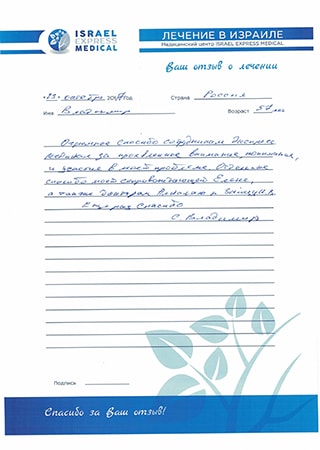 ISRAEL
EXPRESS
MEDICAL
ЛЕЧЕНИЕ В ИЗРАИЛЕ
Медицинский центр ISRAEL EXPRESS MEDICAL
Ваш отзыв о лечении
"23" октября 2017 год Страна Россия
Имя Владимир Возраст 57 лет
Огромное спасибо сотрудникам Экспресс
Медикал за проявленное внимание, понимание,
и участие в моей проблеме. Отдельное
спасибо моей сопровождающей Елене,
а также докторам
Ещё раз спасибо
С. Владимир
Подпись
Спасибо за Ваш отзыв!